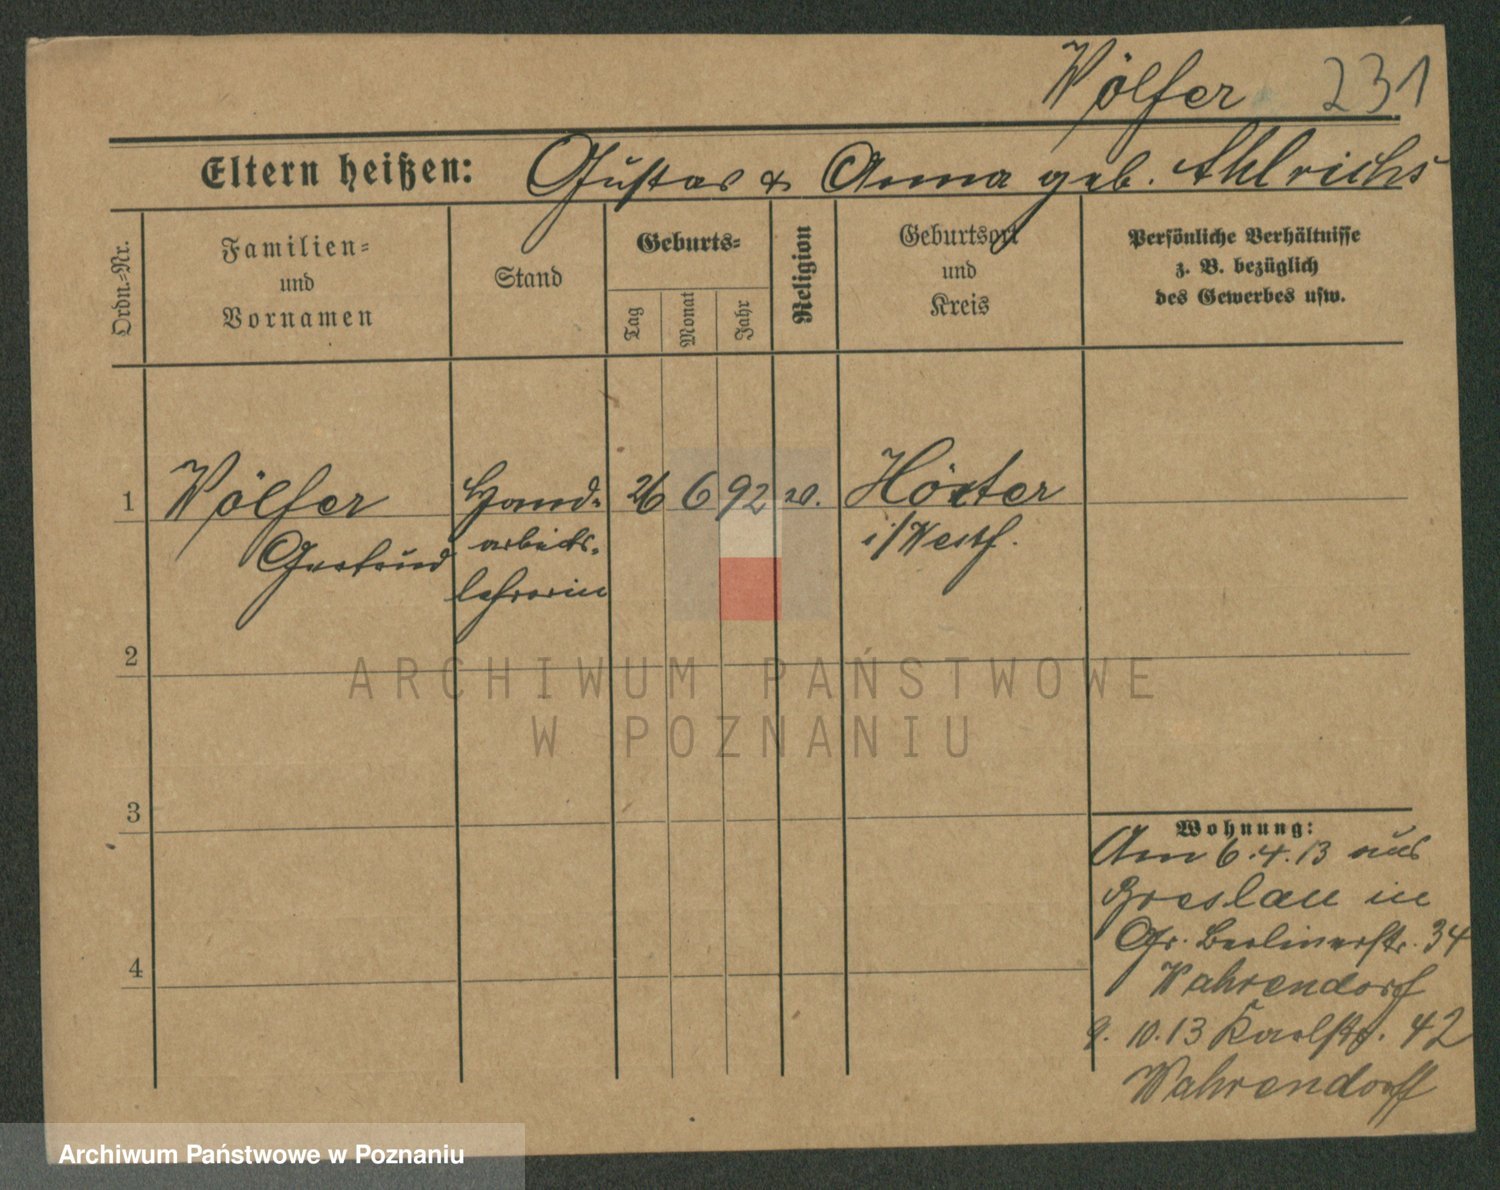 Wölfer 231
Eltern heißen: Gustav & Anna geb. Ahlrichs
Ordn.-Nr.
Familien-
und
Vornamen
Stand
Geburts-
Tag
Monat
Jahr
Religion
Geburtsort
und
Kreis
Persönliche Verhältnisse
z. B. bezüglich
des Gewerbes usw.
1 Wölfer Hand- 26 6 92 Höxter
Gertrud arbeits- i/Westf.
lehrerin
2
ARCHIWUM PAŃSTWOWE
W POZNANIU
3
Wohnung:
Am 6.4.13 aus
Breslau in
Gr. Berlinerstr. 34
Wahrendorf
4
9. 10. 13 Karlstr. 42
Wahrendorff
Archiwum Państwowe w Poznaniu